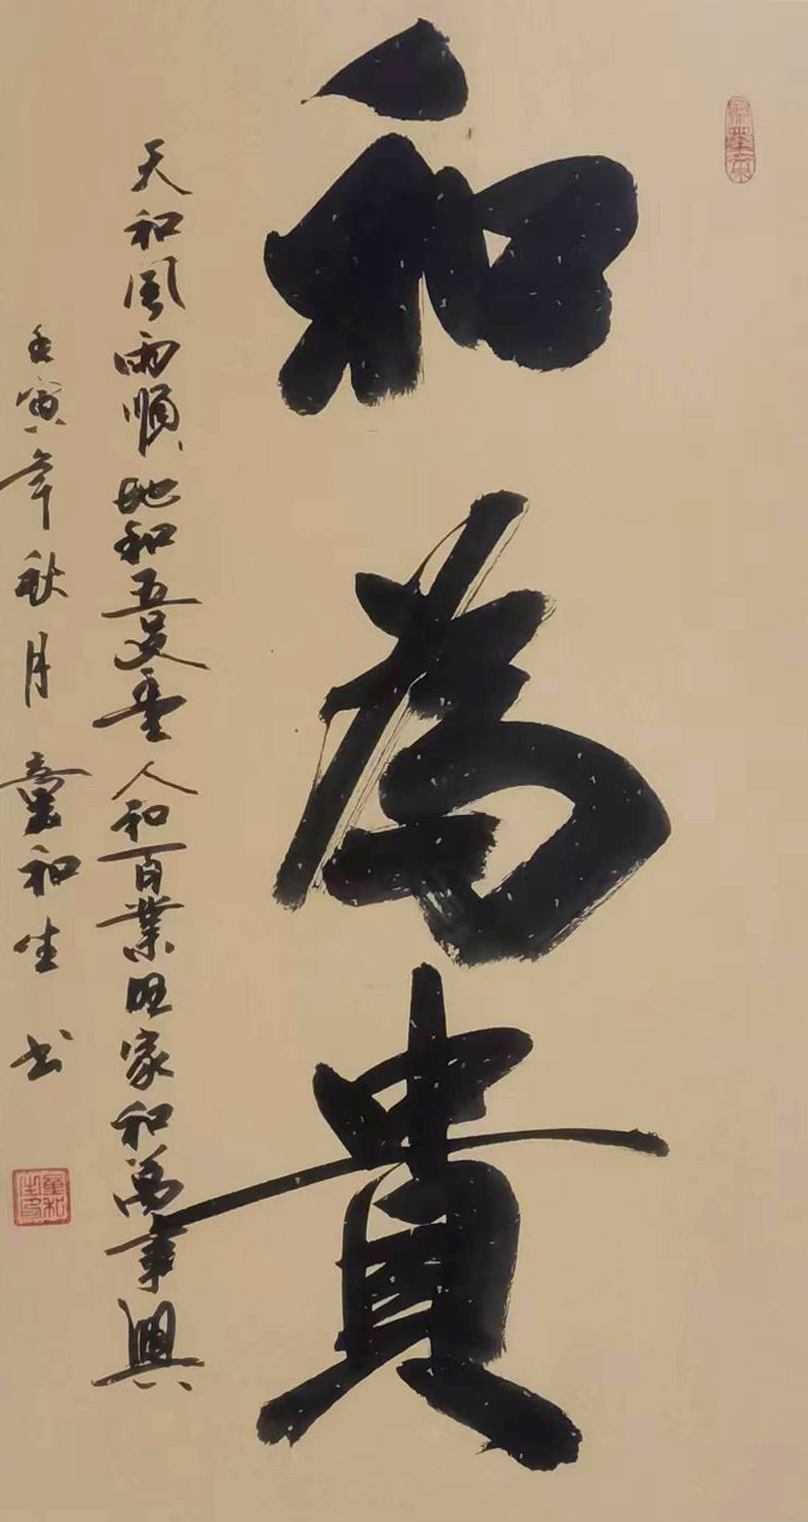 和為貴
天和風雨順地和五人和百業旺家和萬事興
壬寅年秋月童和生书
童和生印